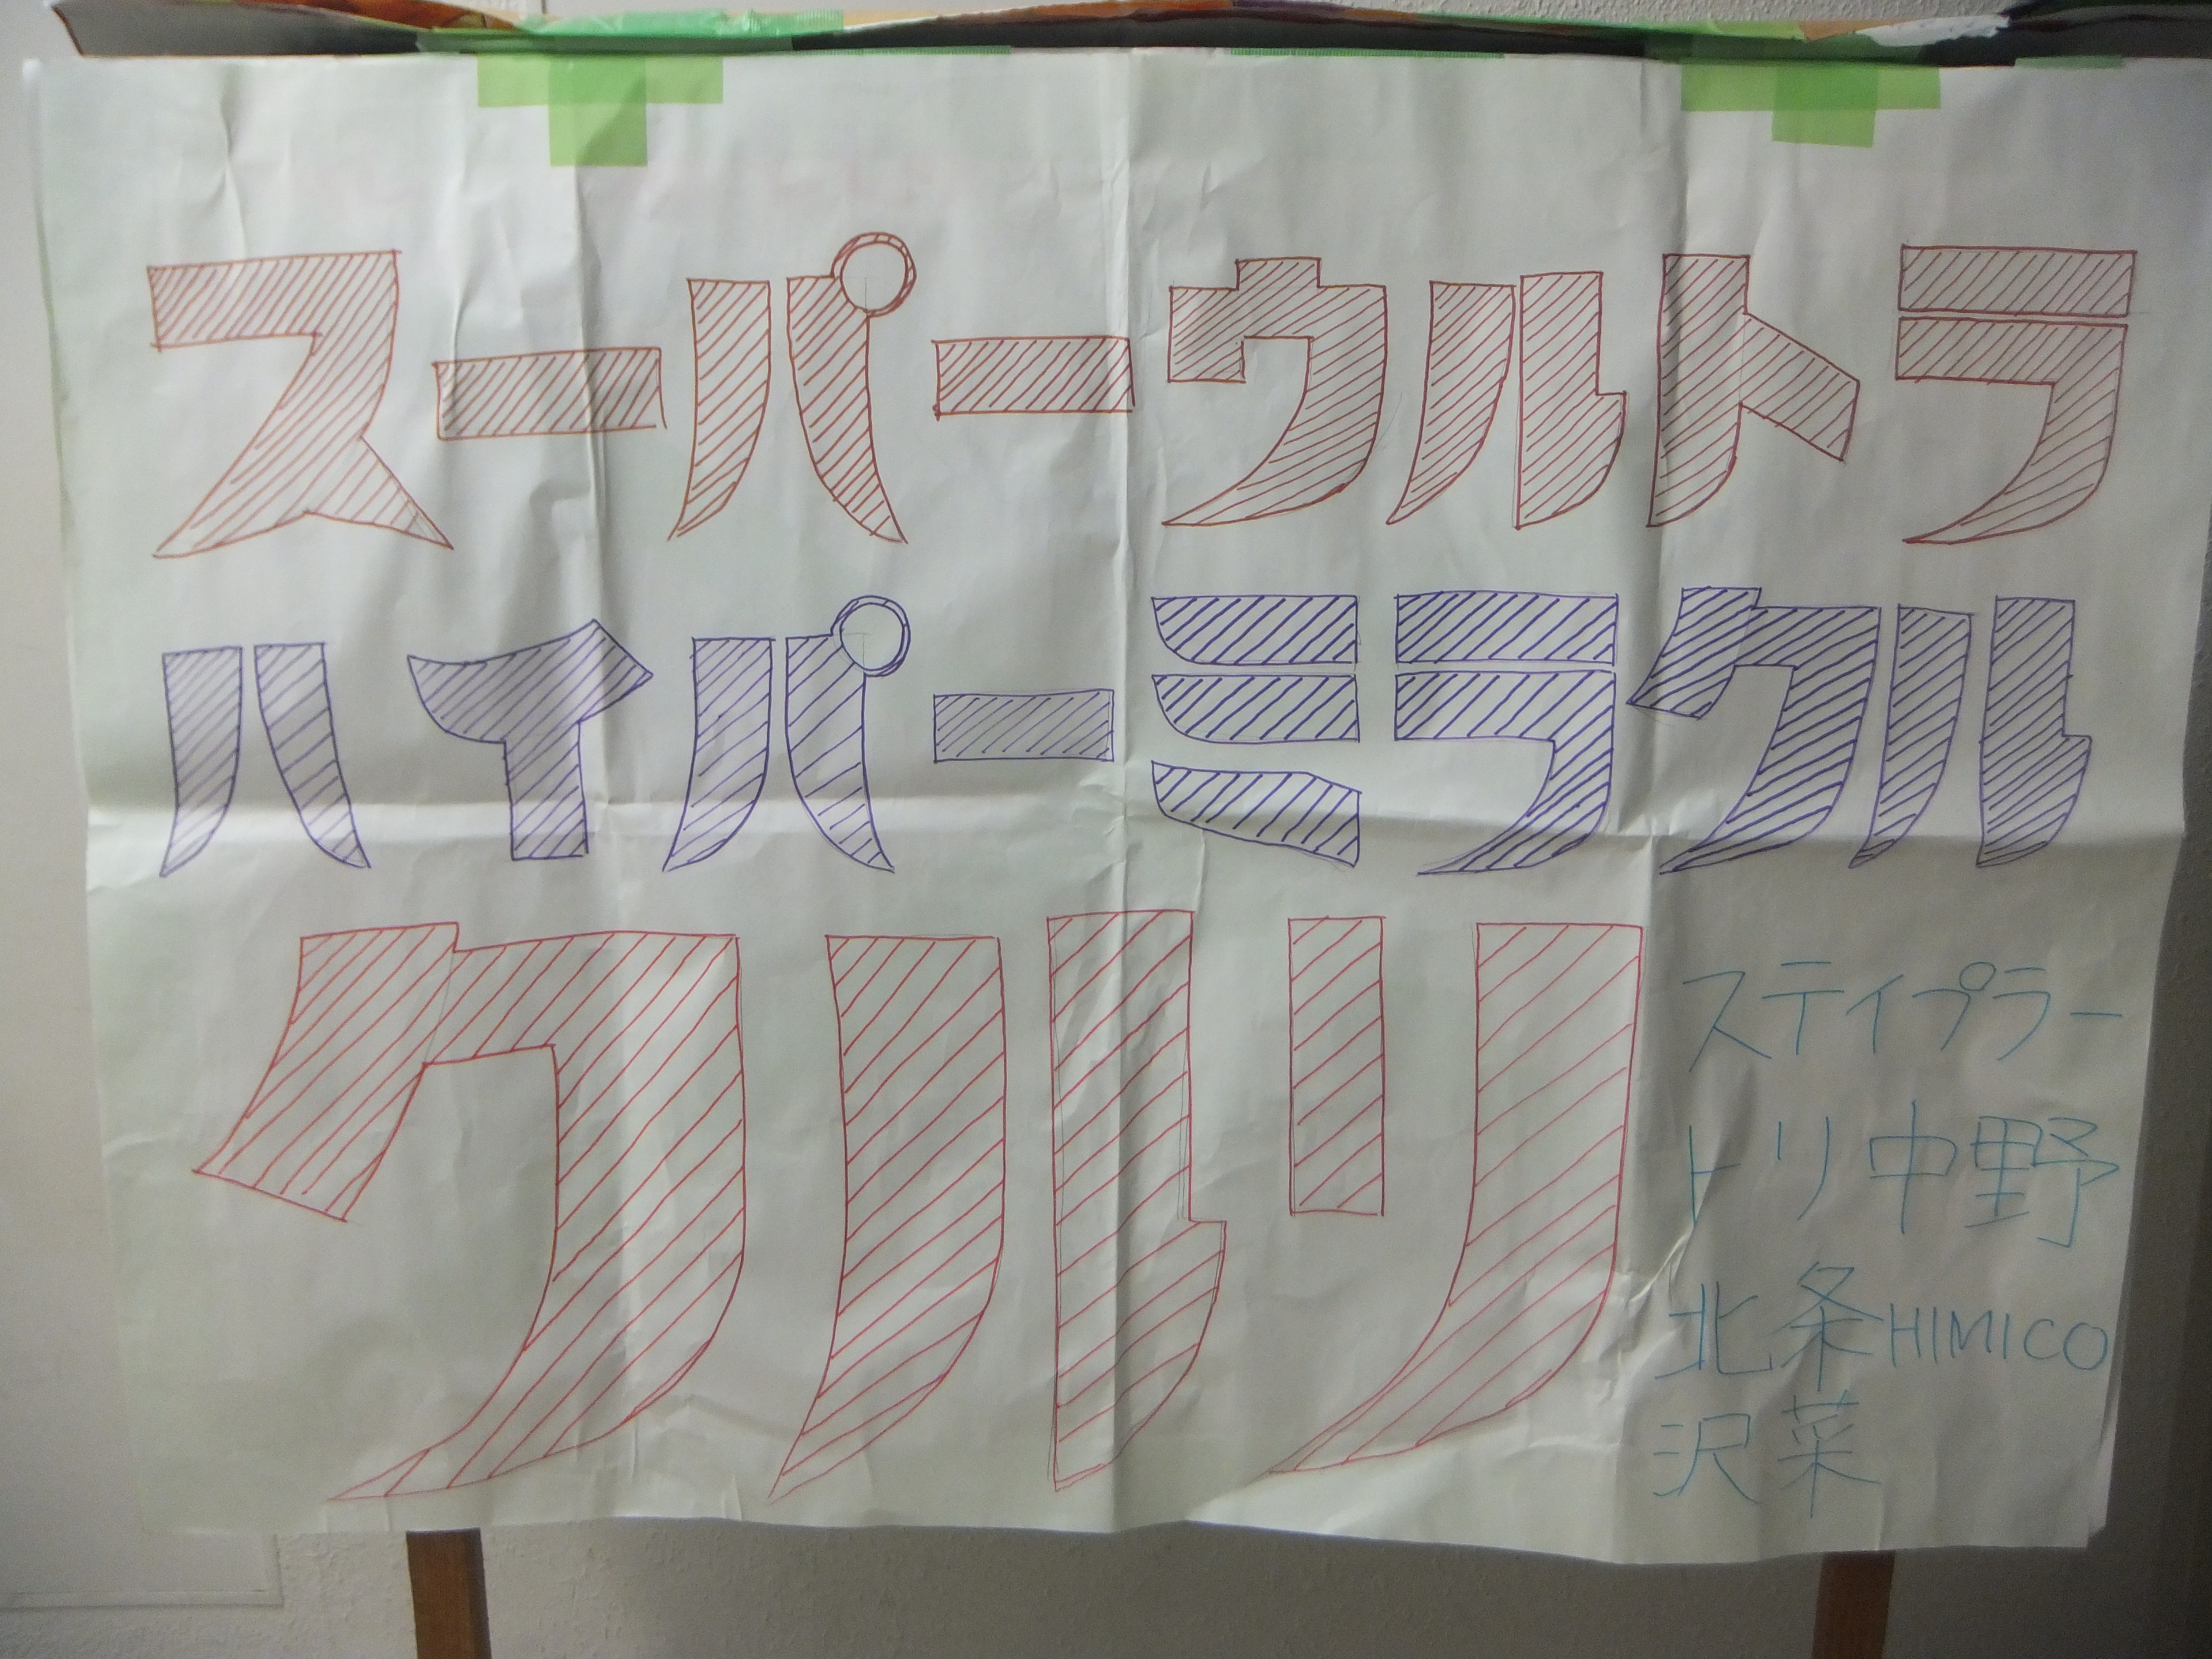 スーパーウルトラ
ハイパーミラクル
クルリ
スティプラー
トリ中野
北条HIMICO
沢菜